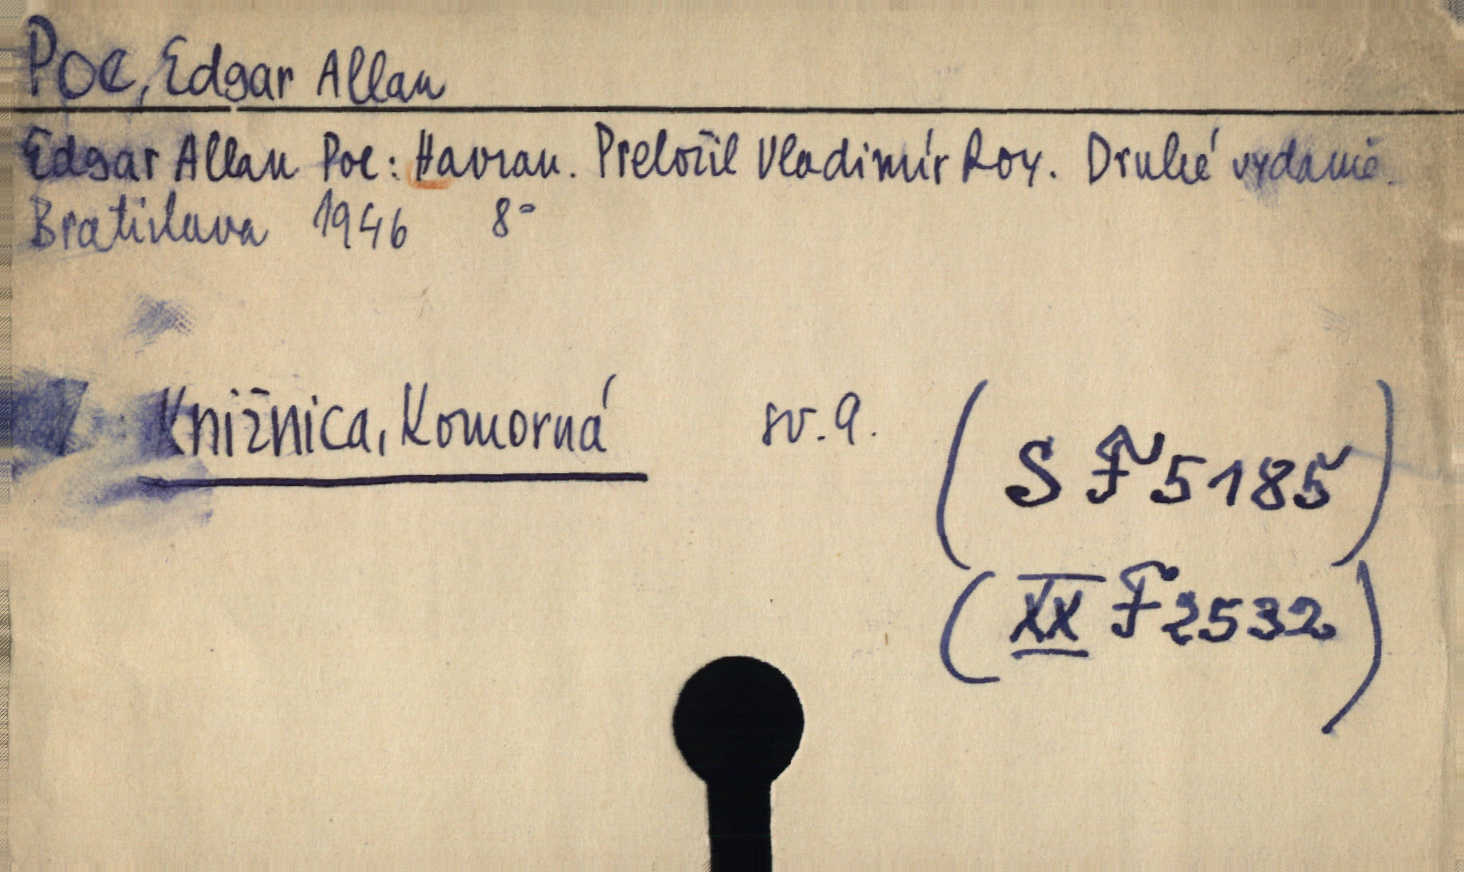 Poe, Edgar Allan
Edgar Allan Poe: Havran. Preložil Vladimír Roy. Druhé vydanie.
Bratislava 1946 8°
Knižnica, Komorná sv. 9.
(S F 5185)
(XX F 2532)